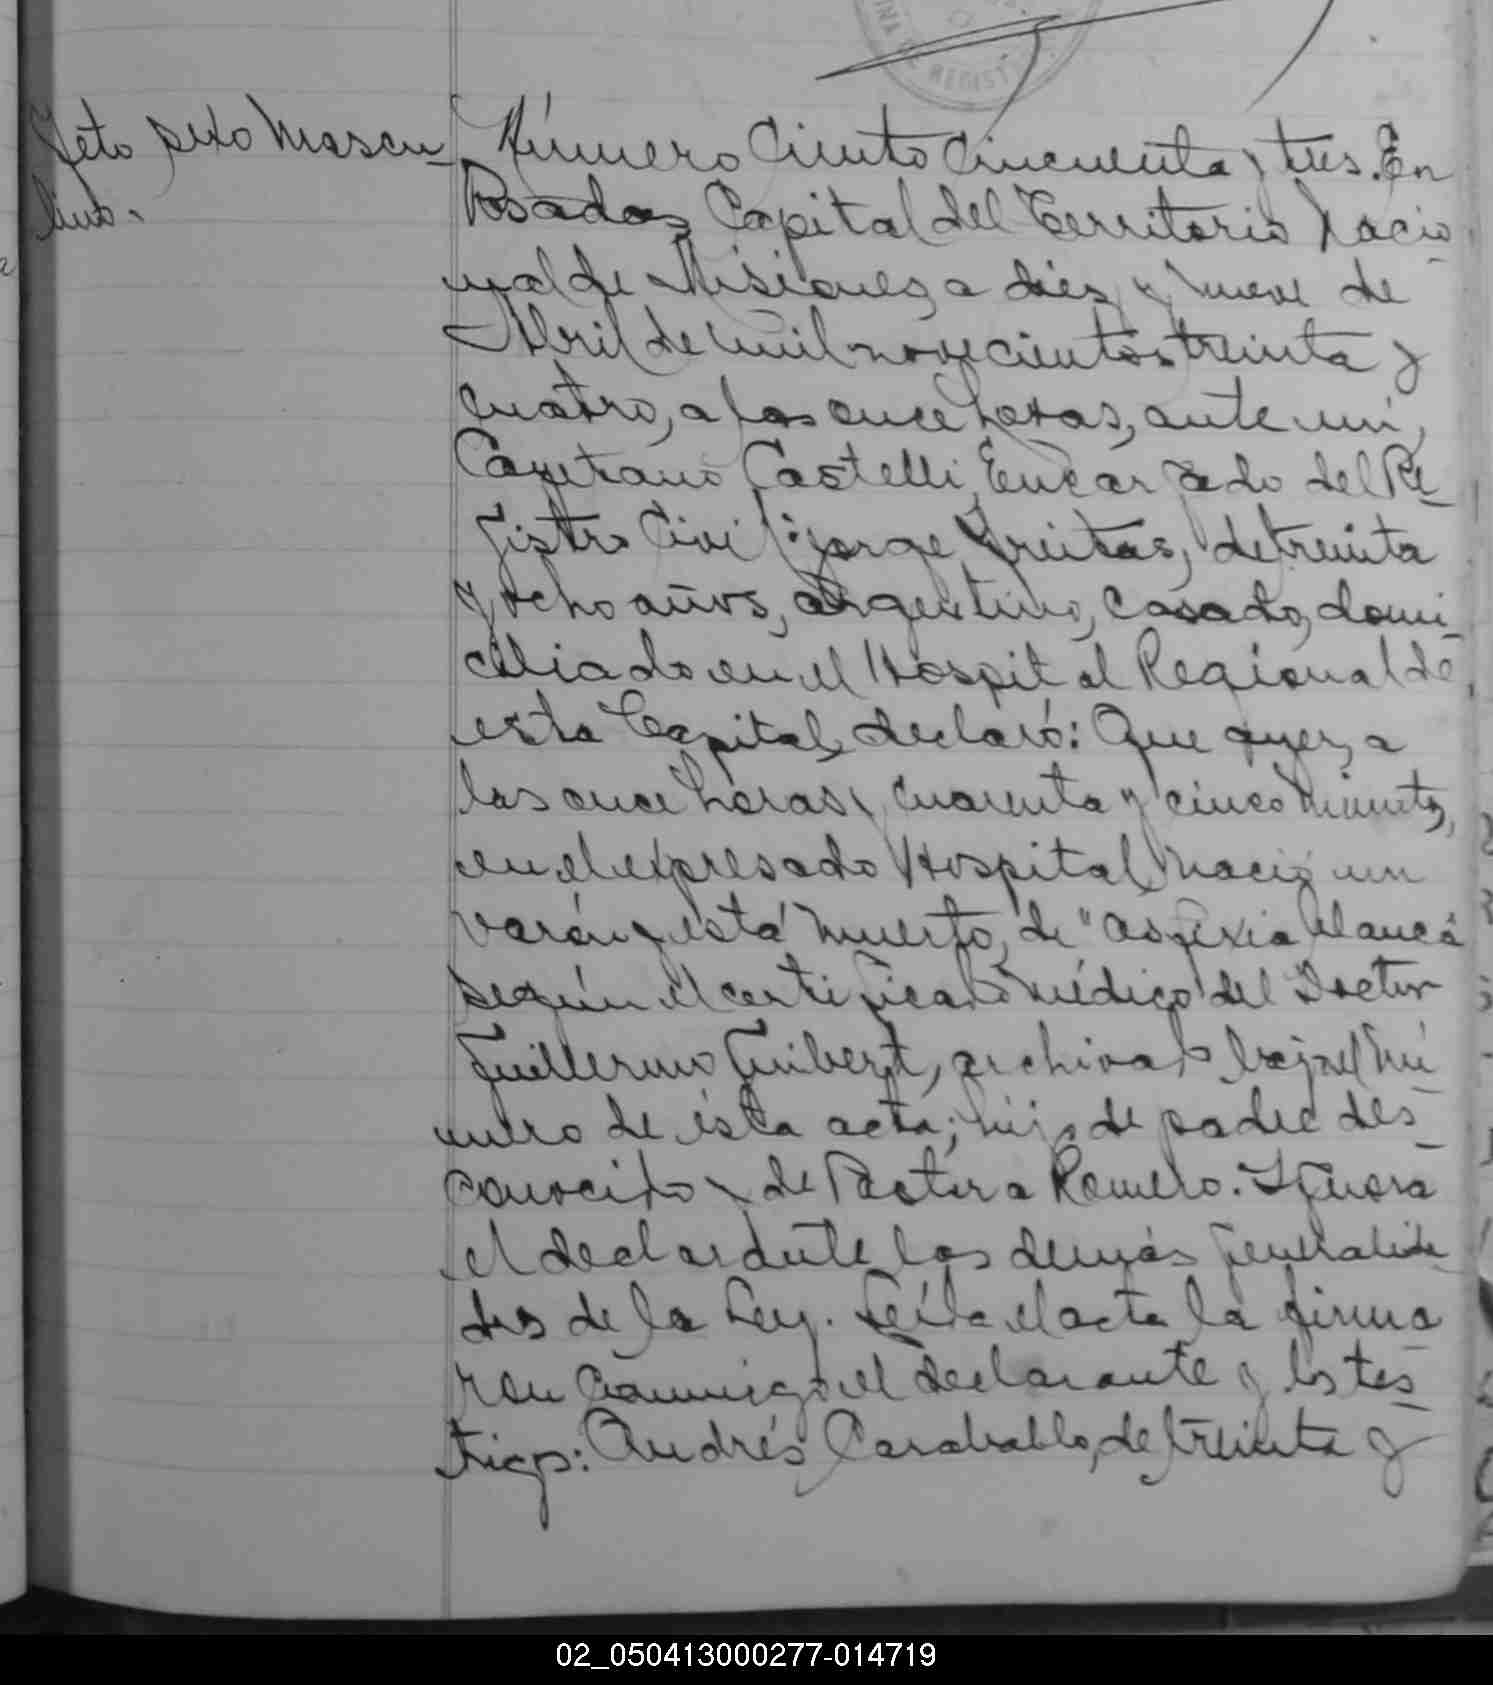 Feto sexo Mascu-
lino.
Número Ciento Cincuenta y tres. En
Posadas Capital del Territorio Nacio-
nal de Misiones, a diez y nueve de
Abril de mil novecientos treinta y
cuatro, a las once horas, ante mí,
Cayetano Castelli, Encargado del Re-
gistro Civil: Jorge Freitas, de treinta
y ocho años, argentino, casado, domi-
ciliado en el Hospital Regional de
esta Capital, declaró: Que ayer, a
las once horas y cuarenta y cinco minutos,
en el expresado Hospital, nació un
varón y está muerto, de "asfixia blanca"
según el certificado médico del Doctor
Guillermo Guibert, archivado bajo el nú-
mero de ésta acta; hijo de padre des-
conocido y de Pastora Romero. Ignora
el declarante las demás generalida-
des de la Ley. Leída el acta la firma-
ron conmigo el declarante y los tes-
tigos: Andrés Caraballo, de treinta y
02_050413000277-014719